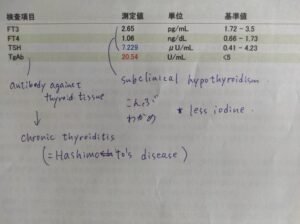 検査項目 測定値 単位 基準値
FT3 2.65 pg/mL 1.72 - 3.5
FT4 1.06 ng/dL 0.66 - 1.73
TSH 7.229 μU/mL 0.41 - 4.23
TgAb 20.54 U/mL <5
antibody against
thyroid tissue
subclinical hypothyroidism
こんぶ
わかめ
* less iodine.
chronic thyroiditis
(= Hashimoto's disease)